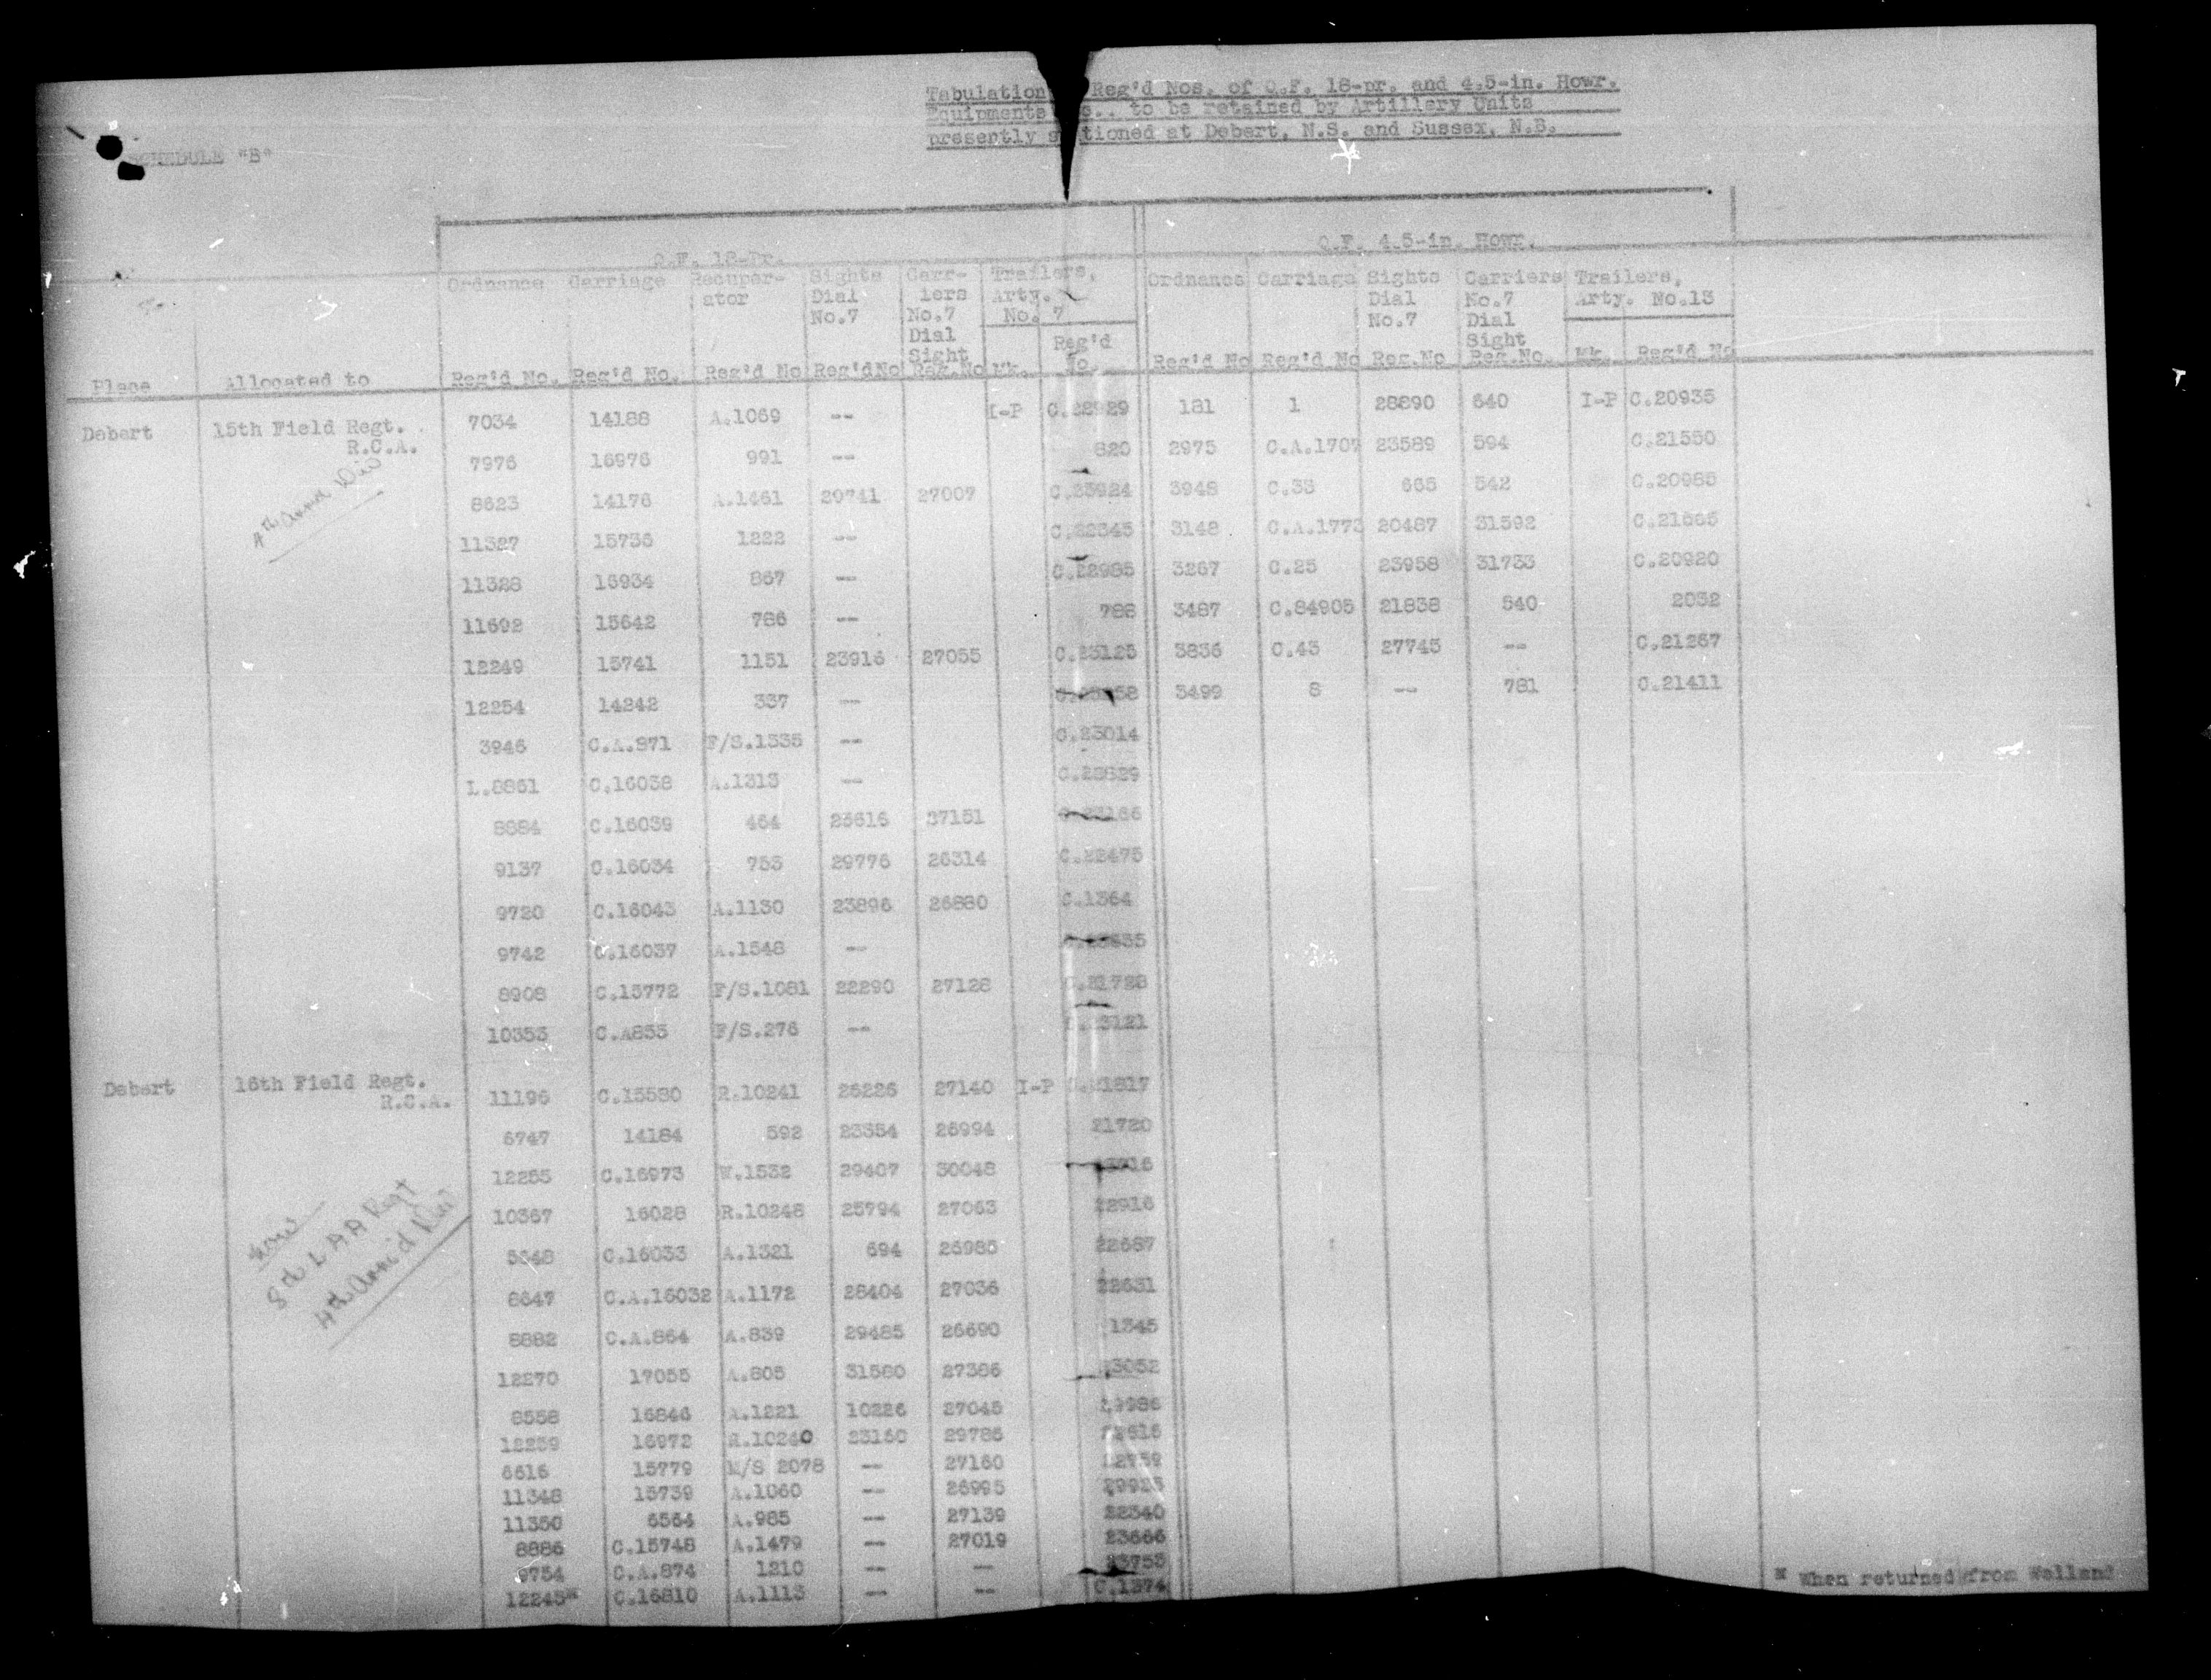 Tabulation Reg'd Nos. of Q.F. 18-pr. and 4.5-in. Howr.
Equipments to be retained by Artillery Units
presently stationed at Debert, N.S. and Sussex, N.B.
SCHEDULE "B"
Q.F. 18-Pr. Q.F. 4.5-in. Howr.
Ordnance Carriage Recuper- Sights Carr- Trailers, Ordnance Carriage Sights Carriers Trailers,
ator Dial iers Arty. Dial No.7 Arty. No.13
No.7 No.7 No. 7 No.7 Dial
Dial Reg'd Sight
Sight
Place Allocated to Reg'd No. Reg'd No. Reg'd No Reg'dNo Reg.No Mk. No. Reg'd No Reg'd No Reg.No Reg.No. Mk. Reg'd No
Debert 15th Field Regt. 7034 14188 A.1069 -- I-P C.22929 181 1 28890 640 I-P C.20935
R.C.A.
7976 16976 991 -- 820 2975 C.A.1707 23589 594 C.21550
4th Armd Div
8623 14176 A.1461 20741 27007 C.23924 3948 C.33 665 542 C.20985
11327 15735 1222 -- C.22345 3148 C.A.1773 20487 31592 C.21565
11328 16934 867 -- C.22985 3267 C.25 23958 31733 C.20920
11692 15642 786 -- 788 3487 C.84905 21838 540 2032
12249 15741 1151 23916 27055 C.23125 3836 C.43 27745 -- C.21267
12254 14242 337 -- 3499 8 -- 781 C.21411
3946 C.A.871 F/S.1535 -- C.23014
L.8851 C.16038 A.1313 -- C.28829
8884 C.16039 464 23616 37151
9137 C.16034 753 29776 26314 C.22475
9720 C.16043 A.1130 23896 26880 C.1364
9742 C.16037 A.1548 --
8908 C.15772 F/S.1081 22290 27128 C.21728
10353 C.A853 F/S.276 -- C.23121
Debert 16th Field Regt. 11196 C.15580 R.10241 26226 27140 I-P C.21817
R.C.A.
6747 14184 592 23354 26994 21720
12255 C.16973 W.1532 29407 30048
10367 16028 R.10248 25794 27063 22916
now
8th LAA Regt
4th Arm'd Div
5648 C.16033 A.1321 694 26985 22687
8647 C.A.16032 A.1172 28404 27036 22631
8882 C.A.864 A.839 29485 26690 1345
12270 17055 A.805 31580 27386 23052
8558 16846 A.1221 10226 27045
12239 16972 R.10240 23160 29786 22616
6616 15779 M/S 2078 -- 27160
11348 15739 A.1060 -- 26995
11350 6564 A.985 -- 27139 22340
8886 C.15748 A.1479 -- 27019 23666
9754 C.A.874 1210 -- -- 23753
12245* C.16810 A.1113 -- -- C.1374
* When returned from Welland